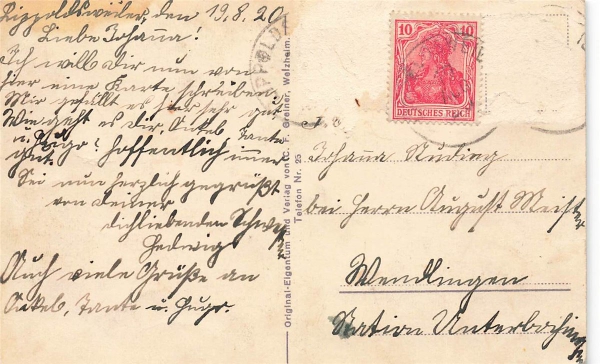 Lippoldsweiler, den 19.8.20
Liebe Johanna!
Ich will dir nun von
hier eine Karte schreiben
Mir gefällt es hier sehr gut
Wie geht es dir, Onkel, Tante
u. Hugo? hoffentlich immer
gut.
Sei nun herzlich gegrüßt
von deiner
dichliebenden Schw
Hedwig
Auch viele Grüße an
Onkel, Tante u. Hugo.
Original-Eigentum und Verlag von C. F. Greiner, Welzheim.
Telefon Nr. 25
10 10
DEUTSCHES REICH
Johanna
bei Herrn August Meister
Wendlingen
Station Unterboihingen